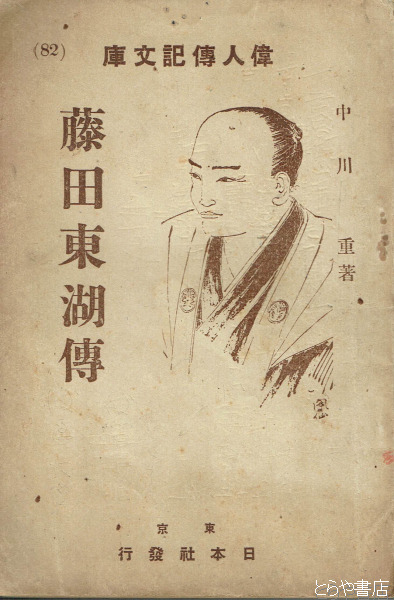 偉人傳記文庫
(82)
中川重著
藤田東湖傳
東京
日本社發行
とらや書店